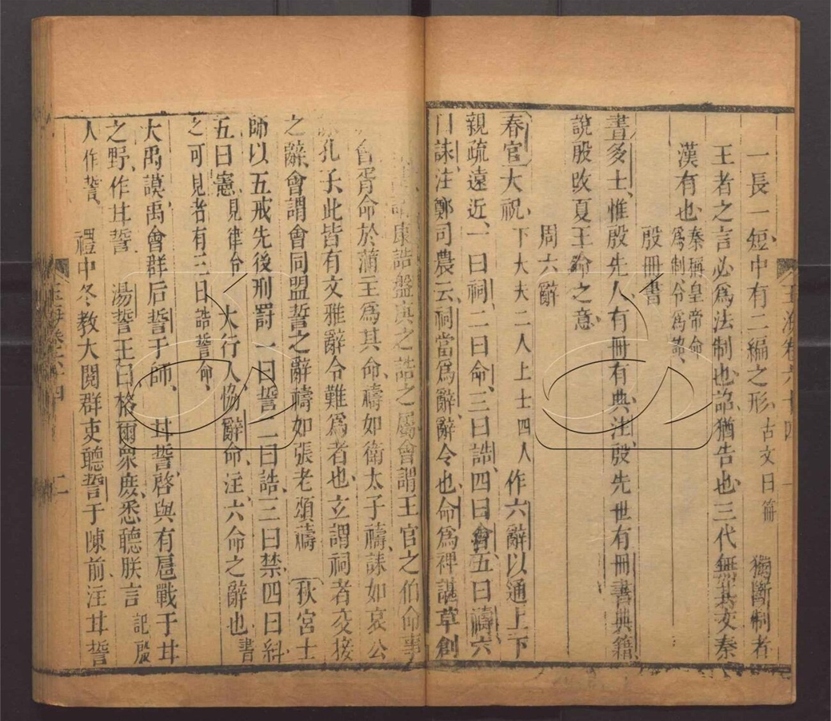 一長一短中有二編之形古文曰𠕋 獨斷制者
王者之言必為法制也詔猶告也三代無其文秦
漢有也秦稱皇帝命為制令為詔
殷冊書
書多士惟殷先人有冊有典注殷先世有冊書典籍
說殷改夏王命之意
周六辭
春官大祝下大夫二人上士四人作六辭以通上下
親疏遠近一曰祠二曰命三曰誥四曰會五曰禱六
曰誄注鄭司農云祠當為辭辭令也命為裨諶草創
康誥盤庚之誥之屬會謂王官之伯命事
胥命於蒲主為其命禱如衛太子禱誄如哀公
孔子此皆有文雅辭令難為者也玄謂祠者交接
之辭會謂會同盟誓之辭禱如張老頌禱 秋官士
師以五戒先後刑罰一曰誓二曰誥三曰禁四曰糾
五曰憲見律令 大行人協辭命注六命之辭也書
之可見者有三曰誥誓命
大禹謨禹會群后誓于師 甘誓啓與有扈戰于甘
之野作甘誓 湯誓王曰格爾衆庶悉聽朕言 記殷
人作誓 禮中冬教大閱群吏聽誓于陳前注甘誓
玉海卷六十四 一
玉海卷六十四 二